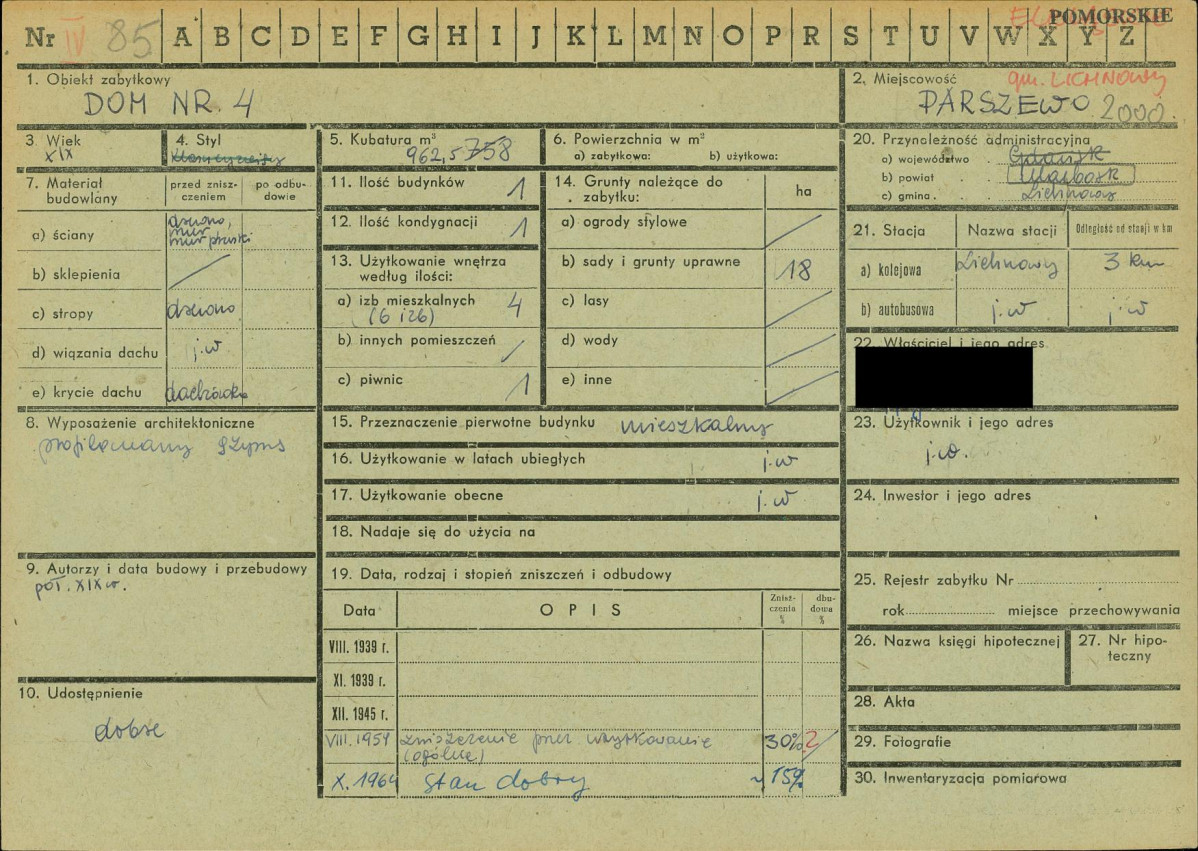 Nr IV 85 A B C D E F G H I J K L M N O P R S T U V W X Y Z
POMORSKIE
1. Obiekt zabytkowy
DOM NR. 4
2. Miejscowość
gm. LICHNOWY
PARSZEWO 2000.
3. Wiek
XIX
4. Styl
5. Kubatura m³
962,5 758
6. Powierzchnia w m²
a) zabytkowa: b) użytkowa:
20. Przynależność administracyjna
a) województwo . Gdańsk
b) powiat . . Malbork
c) gmina . . Lichnowy
7. Materiał budowlany
przed znisz-
czeniem
po odbu-
dowie
a) ściany
drewno,
mur
mur pruski
b) sklepienia /
c) stropy drewno
d) wiązania dachu j.w
e) krycie dachu dachówka
11. Ilość budynków 1
12. Ilość kondygnacji 1
13. Użytkowanie wnętrza
według ilości:
a) izb mieszkalnych 4
(6 izb)
b) innych pomieszczeń /
c) piwnic 1
14. Grunty należące do
zabytku:
ha
a) ogrody stylowe /
b) sady i grunty uprawne 18
c) lasy /
d) wody /
e) inne /
21. Stacja Nazwa stacji Odległość od stacji w km
a) kolejowa Lichnowy 3 km
b) autobusowa j.w j.w
22. Właściciel i jego adres
8. Wyposażenie architektoniczne
profilowany gzyms
15. Przeznaczenie pierwotne budynku mieszkalny
16. Użytkowanie w latach ubiegłych j.w
17. Użytkowanie obecne j.w
18. Nadaje się do użycia na
23. Użytkownik i jego adres
j.w.
24. Inwestor i jego adres
9. Autorzy i data budowy i przebudowy
poł. XIX w.
19. Data, rodzaj i stopień zniszczeń i odbudowy
Data OPIS
Znisz-
czenia
%
dbu-
dowa
%
VIII. 1939 r.
XI. 1939 r.
XII. 1945 r.
VIII. 1959 zniszczenie przez użytkowanie 30% 2/
(ogólne)
X. 1964 Stan dobry ~ 15%
10. Udostępnienie
dobre
25. Rejestr zabytku Nr
rok miejsce przechowywania
26. Nazwa księgi hipotecznej
27. Nr hipo-
teczny
28. Akta
29. Fotografie
30. Inwentaryzacja pomiarowa